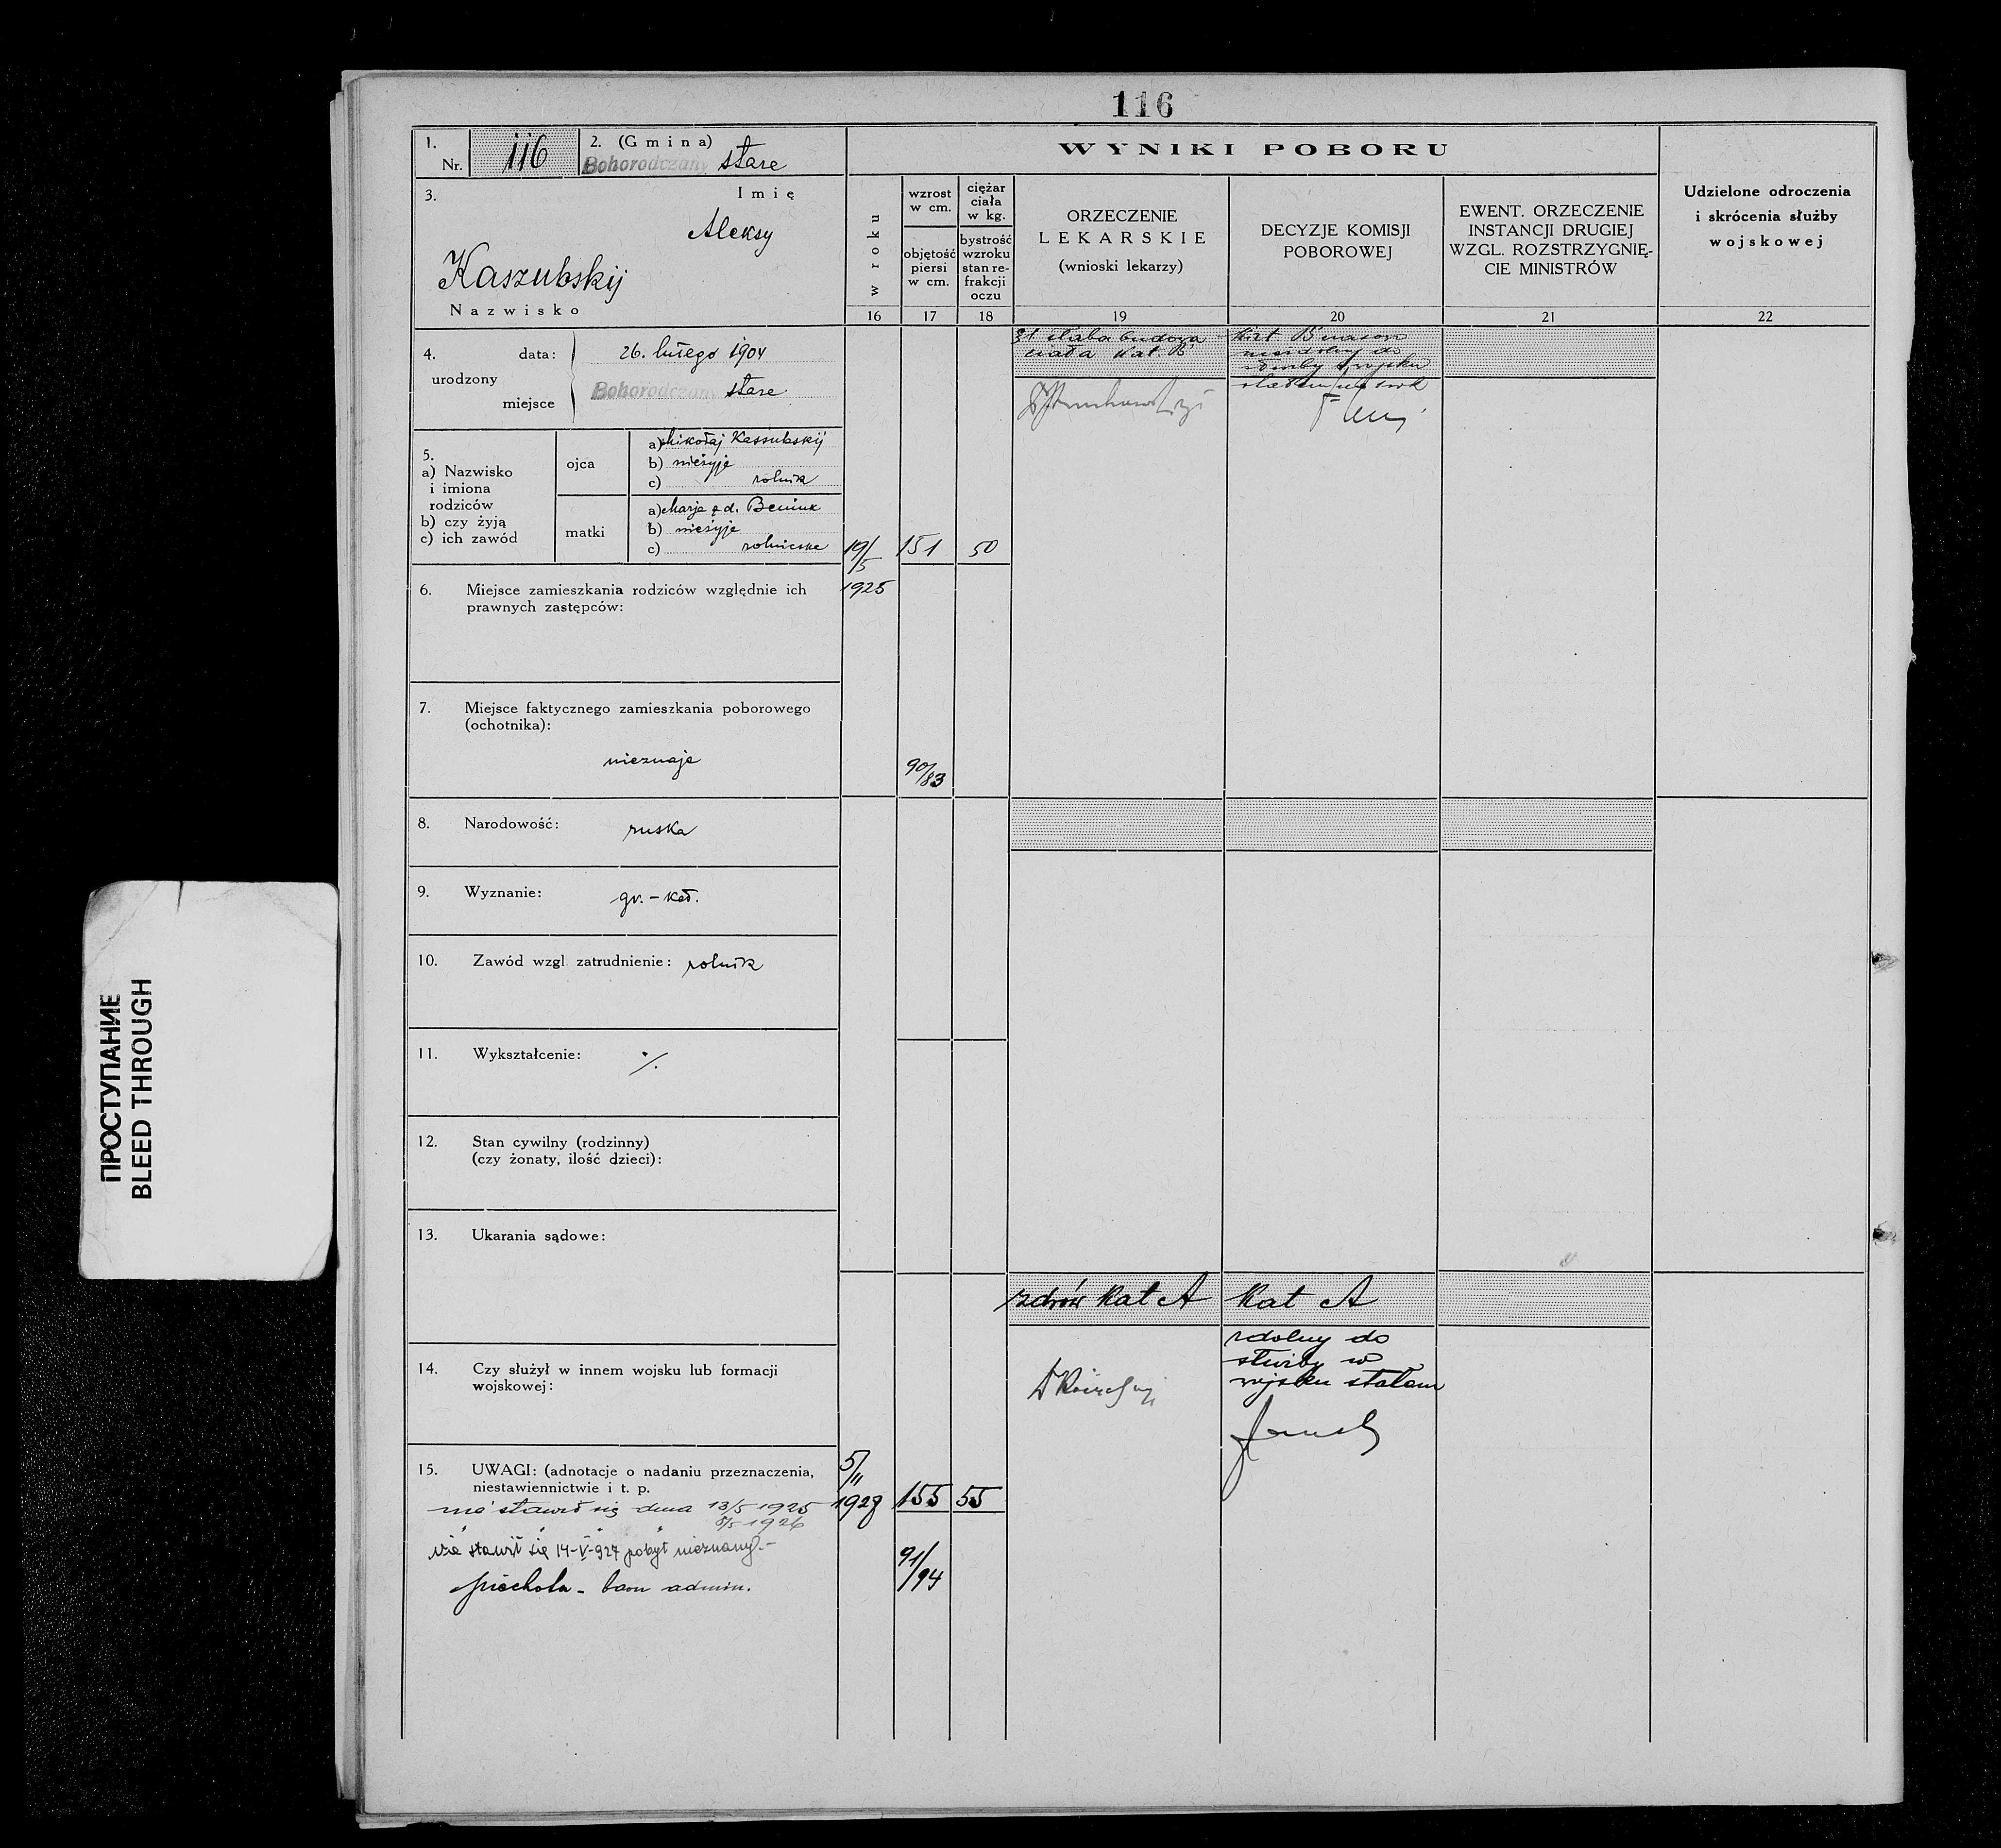 116
1.
Nr. 116
2. (Gmina)
Bohorodczany stare
WYNIKI POBORU
3. Imię
Aleksy
Kaszubskij
Nazwisko
w roku
wzrost w cm.
objętość piersi w cm.
ciężar ciała w kg.
bystrość wzroku stan re-frakcji oczu
ORZECZENIE
LEKARSKIE
(wnioski lekarzy)
DECYZJE KOMISJI
POBOROWEJ
EWENT. ORZECZENIE
INSTANCJI DRUGIEJ
WZGL. ROZSTRZYGNIĘ-
CIE MINISTRÓW
Udzielone odroczenia
i skrócenia służby
wojskowej
16 17 18 19 20 21 22
4. urodzony
data: 26. lutego 1904
miejsce Bohorodczany stare
5.
a) Nazwisko
i imiona
rodziców
b) czy żyją
c) ich zawód
ojca
a) Mikołaj Kaszubskij
b) nieżyje
c) rolnik
matki
a) Marja Beniuk
b) nieżyje
c)
19/5
1925
151 50
90/83
słaba budowa
ciała kat. B
6. Miejsce zamieszkania rodziców względnie ich
prawnych zastępców:
7. Miejsce faktycznego zamieszkania poborowego
(ochotnika):
nieznaje
8. Narodowość: ruska
9. Wyznanie: gr.-kat.
10. Zawód wzgl. zatrudnienie: rolnik
11. Wykształcenie: ./.
12. Stan cywilny (rodzinny)
(czy żonaty, ilość dzieci):
13. Ukarania sądowe:
14. Czy służył w innem wojsku lub formacji
wojskowej:
zdrów Kat A
Kat A
zdolny do
służby w
wojsku stałem
15. UWAGI: (adnotacje o nadaniu przeznaczenia,
niestawiennictwie i t. p.
nie stawił się dnia 13/5 1925
8/5 1926
nie stawił się 14-V-927 pobyt nieznany.-
piechota - admin.
5/11
1928
155 55
91/94
ПРОСТУПАНИЕ
BLEED THROUGH